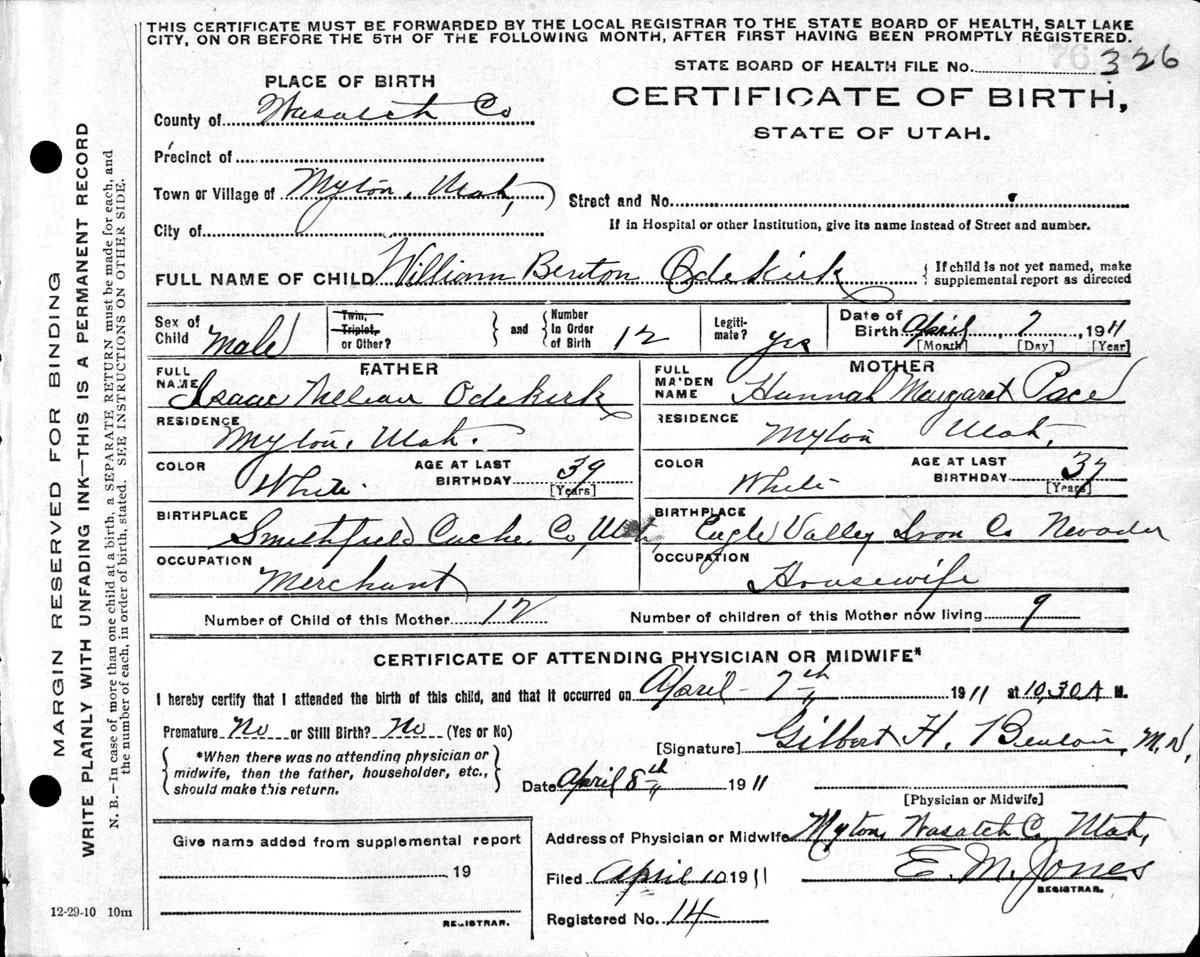 THIS CERTIFICATE MUST BE FORWARDED BY THE LOCAL REGISTRAR TO THE STATE BOARD OF HEALTH, SALT LAKE
CITY, ON OR BEFORE THE 5TH OF THE FOLLOWING MONTH, AFTER FIRST HAVING BEEN PROMPTLY REGISTERED.
76
STATE BOARD OF HEALTH FILE No. 326
PLACE OF BIRTH
CERTIFICATE OF BIRTH,
STATE OF UTAH.
County of Wasatch Co
Precinct of
Town or Village of Myton, Utah,
Street and No.
City of
If in Hospital or other Institution, give its name instead of Street and number.
FULL NAME OF CHILD William Benton Odekirk { If child is not yet named, make
supplemental report as directed
Sex of Child Male
Twin, Triplet, or Other? } and { Number In Order of Birth 12
Legiti-mate? yes
Date of Birth April, 7, 1911
[Month] [Day] [Year]
FATHER
FULL NAME Isaac Odekirk
MOTHER
FULL MAIDEN NAME Hannah Margaret Pace
RESIDENCE Myton, Utah.
RESIDENCE Myton Utah.
COLOR White. AGE AT LAST BIRTHDAY 39 [Years]
COLOR White AGE AT LAST BIRTHDAY 37 [Years]
BIRTHPLACE Smithfield Cache. Co, Utah,
BIRTHPLACE Eagle Valley Iron Co Nevader
OCCUPATION Merchant
OCCUPATION Housewife
Number of Child of this Mother 12 Number of children of this Mother now living 9
CERTIFICATE OF ATTENDING PHYSICIAN OR MIDWIFE*
I hereby certify that I attended the birth of this child, and that it occurred on April - 7th 1911 at 10,30 A M.
Premature No or Still Birth? No (Yes or No)
[Signature] Gilbert H. Benton,
{ *When there was no attending physician or
midwife, then the father, householder, etc.,
should make this return. }
Date April 8th 1911
[Physician or Midwife]
Address of Physician or Midwife Myton, Wasatch C. Utah,
Give name added from supplemental report
19
REGISTRAR.
Filed April 10 1911 E. M. Jones
REGISTRAR.
Registered No. 14
12-29-10 10m
MARGIN RESERVED FOR BINDING
WRITE PLAINLY WITH UNFADING INK—THIS IS A PERMANENT RECORD
N. B.—In case of more than one child at a birth, a SEPARATE RETURN must be made for each, and
the number of each, in order of birth, stated. SEE INSTRUCTIONS ON OTHER SIDE.